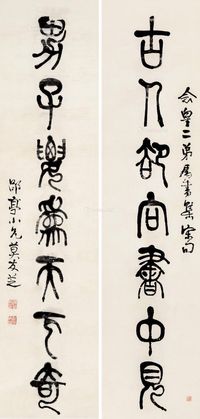 念皇二弟屬書集宋句
古人卻向書中見
男子要為天下奇
郘亭小兄莫友芝